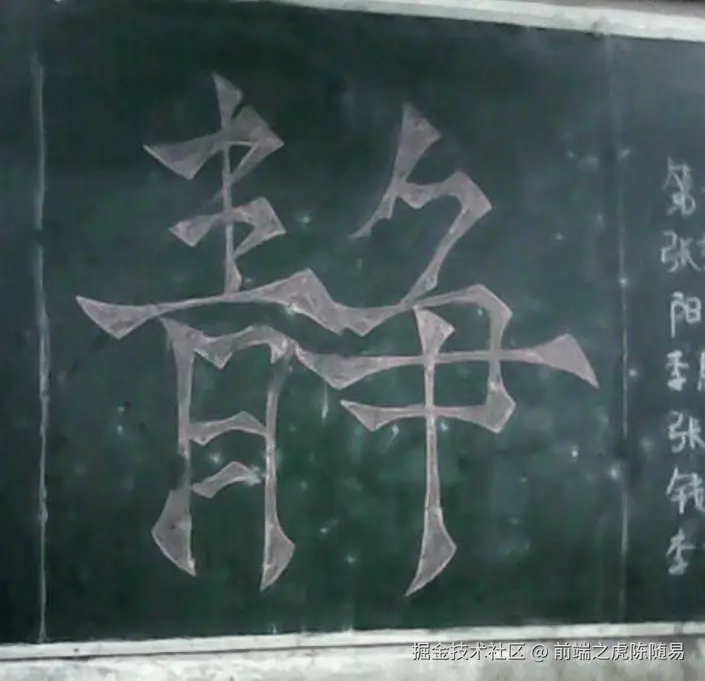 静
第
张
阳
李
张
钱
李
掘金技术社区 @ 前端之虎陈随易